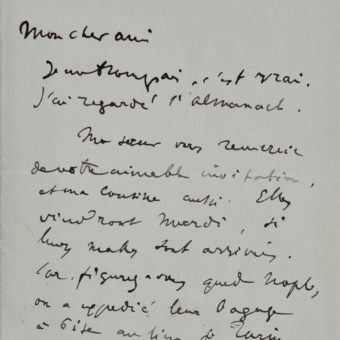 Mon cher ami
Je me trompais, c'est vrai.
J'ai regardé l'almanach.
Ma sœur vous remercie
de votre aimable invitation,
et ma cousine aussi. Elles
viendront mardi, si
leurs malles sont arrivées.
Car figurez-vous que de Naples,
on a expédié leur bagage
à Pise au lieu de Paris